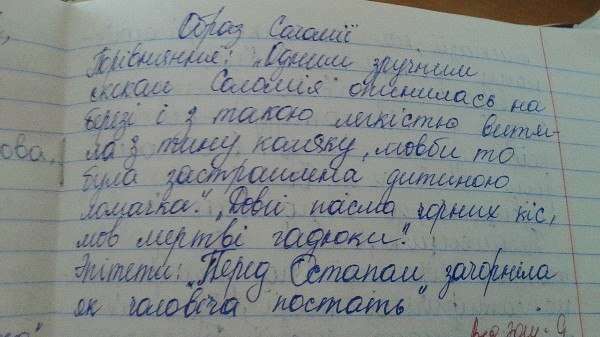 Образ Соломії
Порівняння: „Одним зручним
скоком Соломія опинилась на
березі і з такою легкістю витяг-
ла з тину комяку, мовби то
була застромлена дитиною
ломачка." „Довгі пасма чорних кіс,
мов мертві гадюки".
Епітети: „Перед Остапом зачорніла
як чоловіча постать"
ова,